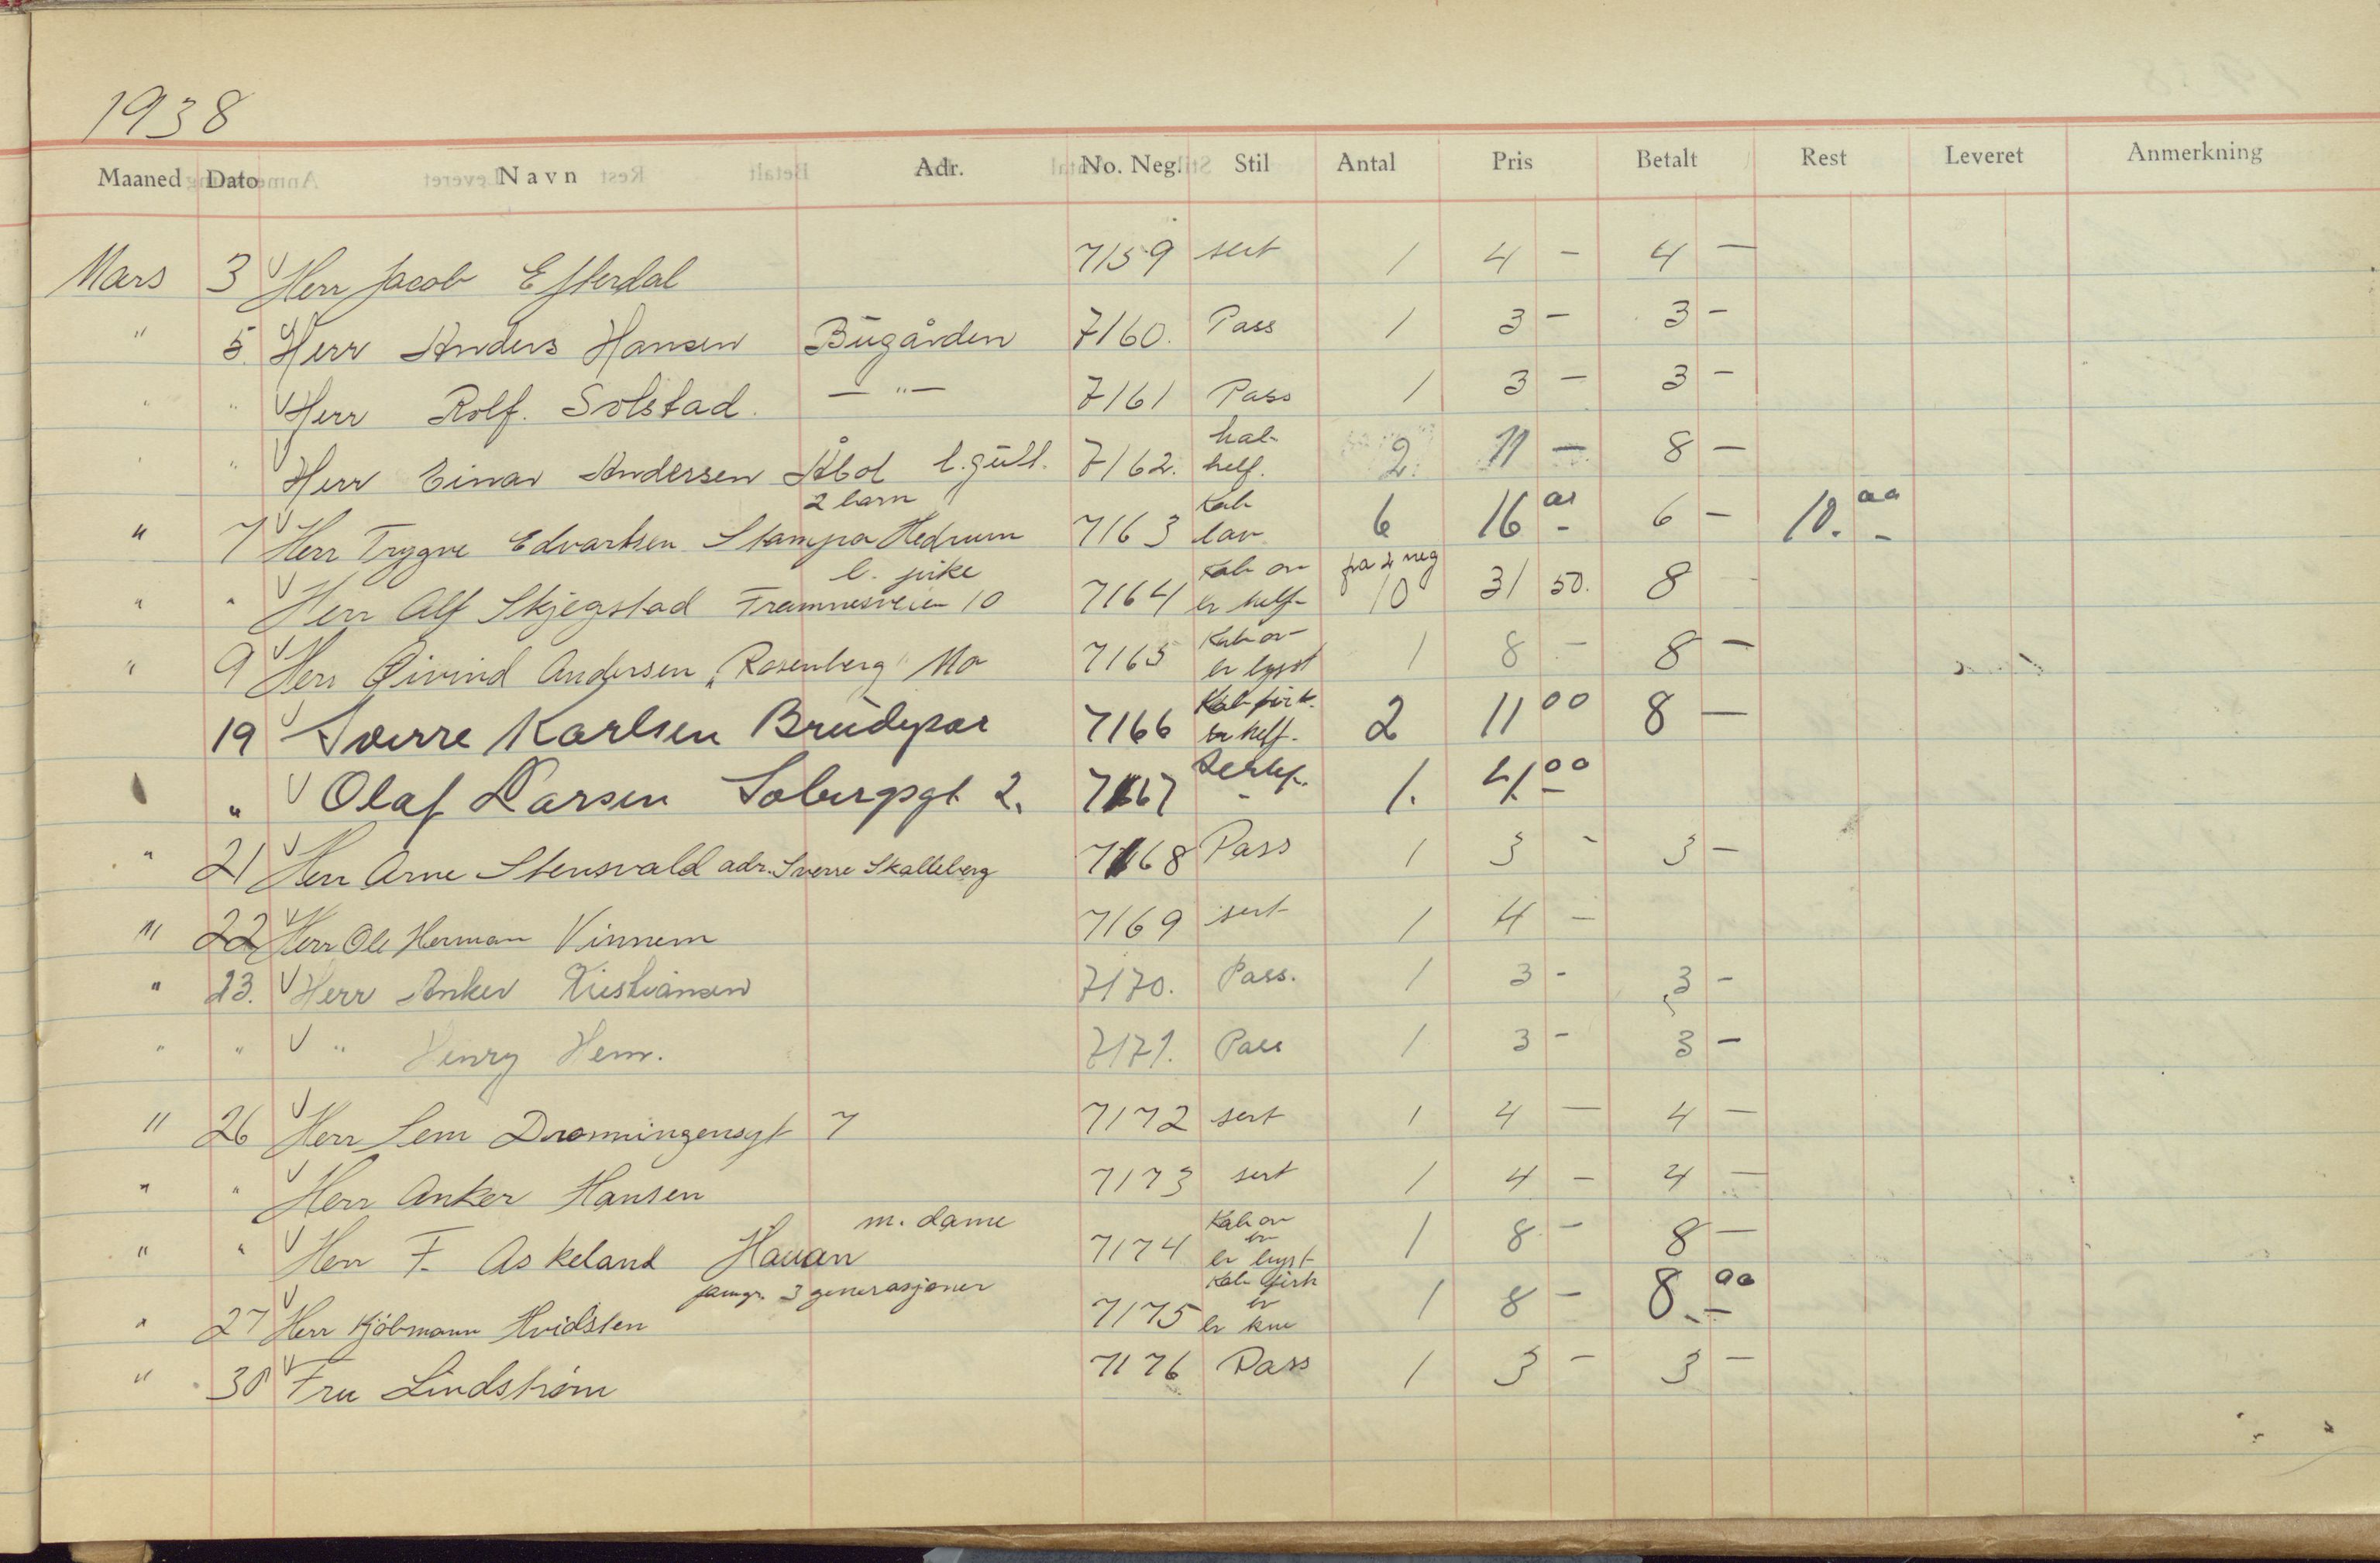 1938
Maaned Dato Navn Adr. No. Neg. Stil Antal Pris Betalt Rest Leveret Anmerkning
Mars 3 V Herr Jacob Efterdal 7159 sert 1 4 - 4 -
" 5. V Herr Anders Hansen Bugården 7160. Pass 1 3 - 3 -
" " V Herr Rolf. Solstad. — " — 7161 Pass 1 3 - 3 -
" " V Herr Einar Andersen Åbol l. gutt. 7162. hal- helf. 2. 11 - 8 -
2 barn
" 7 V Herr Trygve Edvartsen Stampa Hedrum 7163 Kab 6 16 - 6 - 10. -
l. pike
" " V Herr Alf Skjegstad Framnesveien 10 7164 Kab er helf- fra 2 neg 10 31 50. 8
" 9 V Herr Øivind Andersen "Rosenberg" Mo 7165 Kab er lyst 1 8 - 8 -
19 V Sverre Karlsen Brudepar 7166 Kab er helf. 2 11 00 8 -
" V Olaf Larsen Sobergsgt 2. 7167 1. 4. 00
" 21 V Herr Arne Stensvald adr. Sverre Skalleberg 7168 Pass 1 3 - 3 -
" 22 V Herr Ole Herman Vinnem 7169 sert 1 4 -
" 23. V Herr Anker Kristiansen 7170. Pass. 1 3 - 3 -
" " V " Henry Hem. 7171. Pass 1 3 - 3 -
" 26 V Herr Lem Dronningensgt 7 7172 sert 1 4 - 4 -
" " V Herr Anker Hansen 7173 sert 1 4 - 4 -
m. dame
" " V Herr F. Askeland Hauan 7174 Kab er lyst 1 8 - 8 -
famgr. 3 generasjoner
" 27 V Herr Kjöbmann Hvidsten 7175 Kab er kne 1 8 - 8.- 00
" 30 V Fru Lindstrøm 7176 Pass 1 3 - 3 -